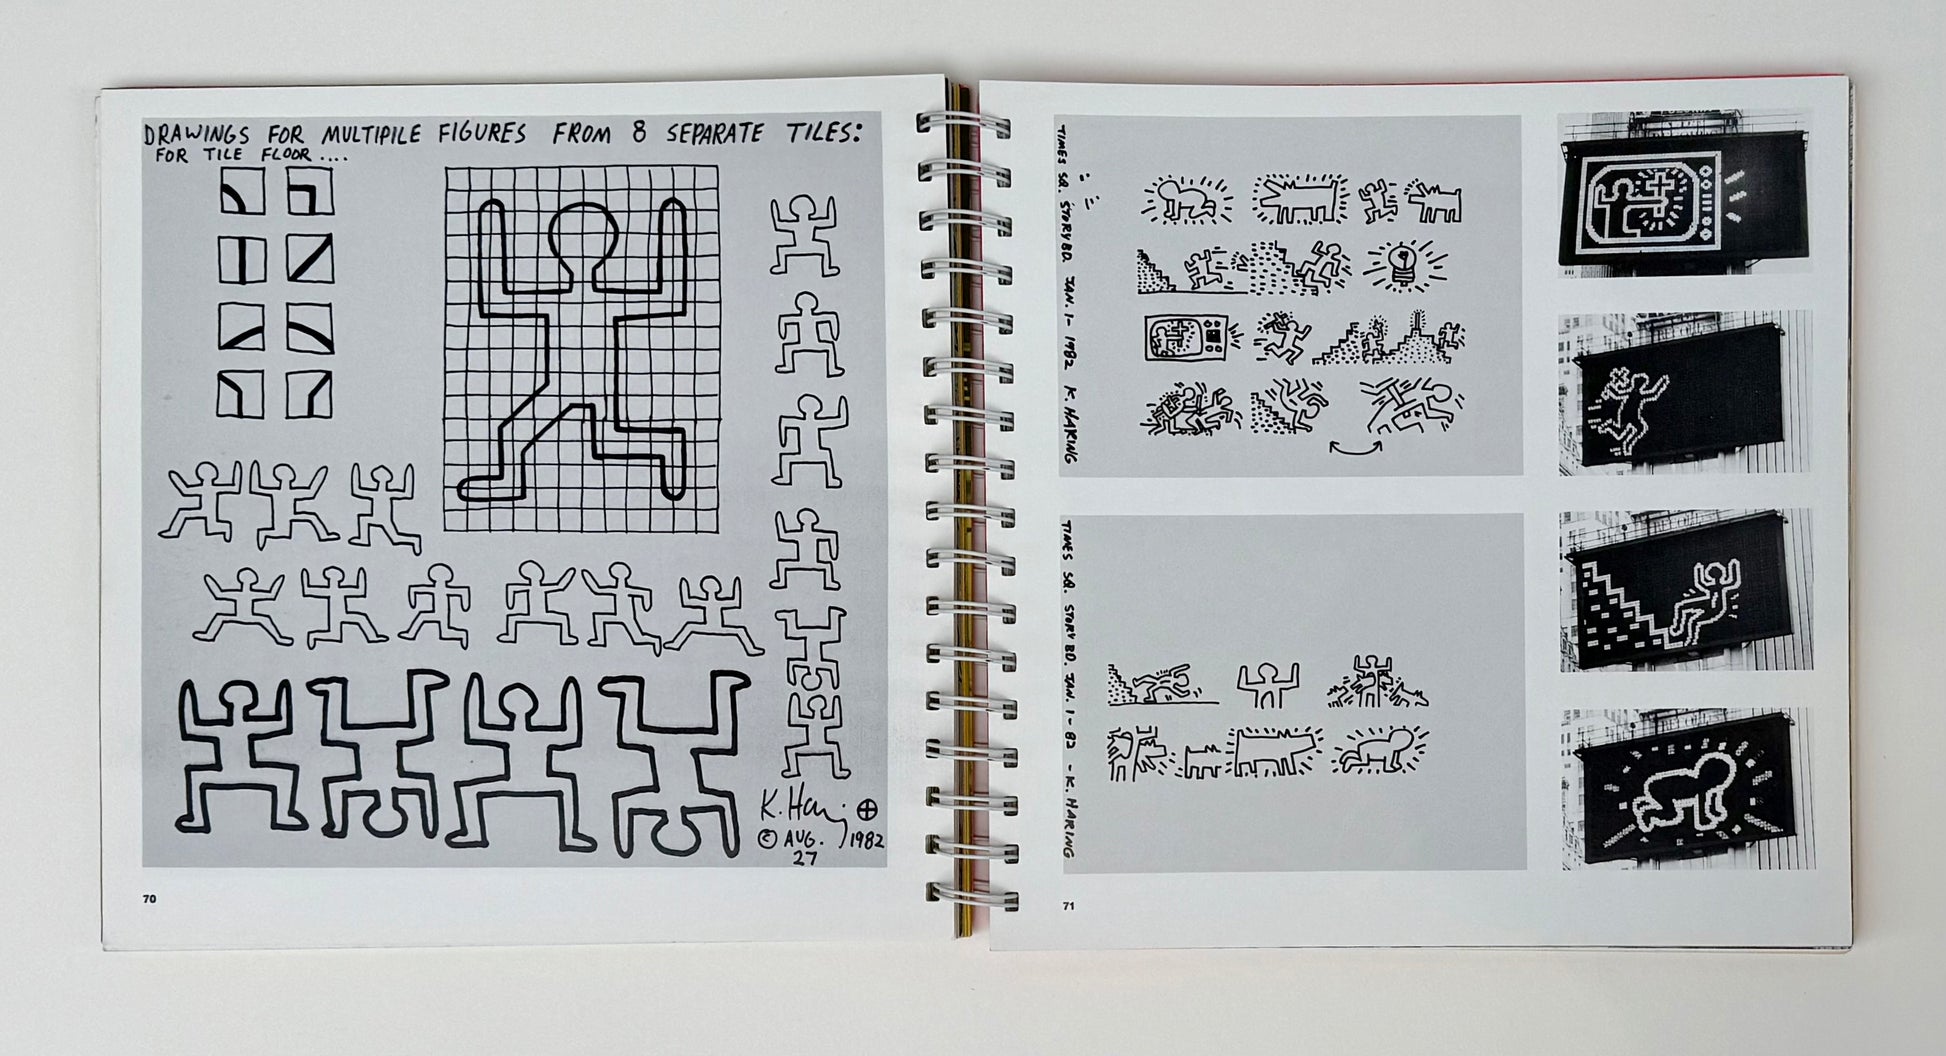 DRAWINGS FOR MULTIPILE FIGURES FROM 8 SEPARATE TILES:
FOR TILE FLOOR ....
K. Haring
© AUG. 27 1982
70
TIMES SQ. STORY BD. JAN. 1 - 1982 K. HARING
TIMES SQ. STORY BD. JAN. 1 - 82 - K. HARING
71